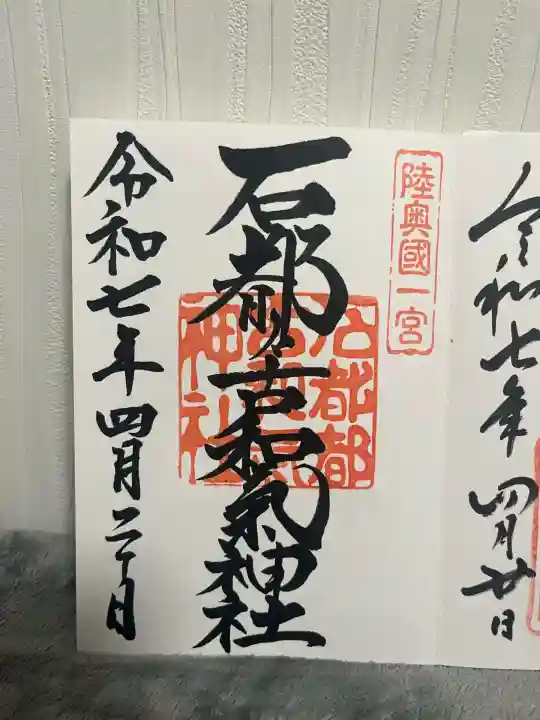 令和七年
四月廿日
陸奥國一宮
石都々古和氣神社
石都都
古和氣
神社
令和七年四月二十日